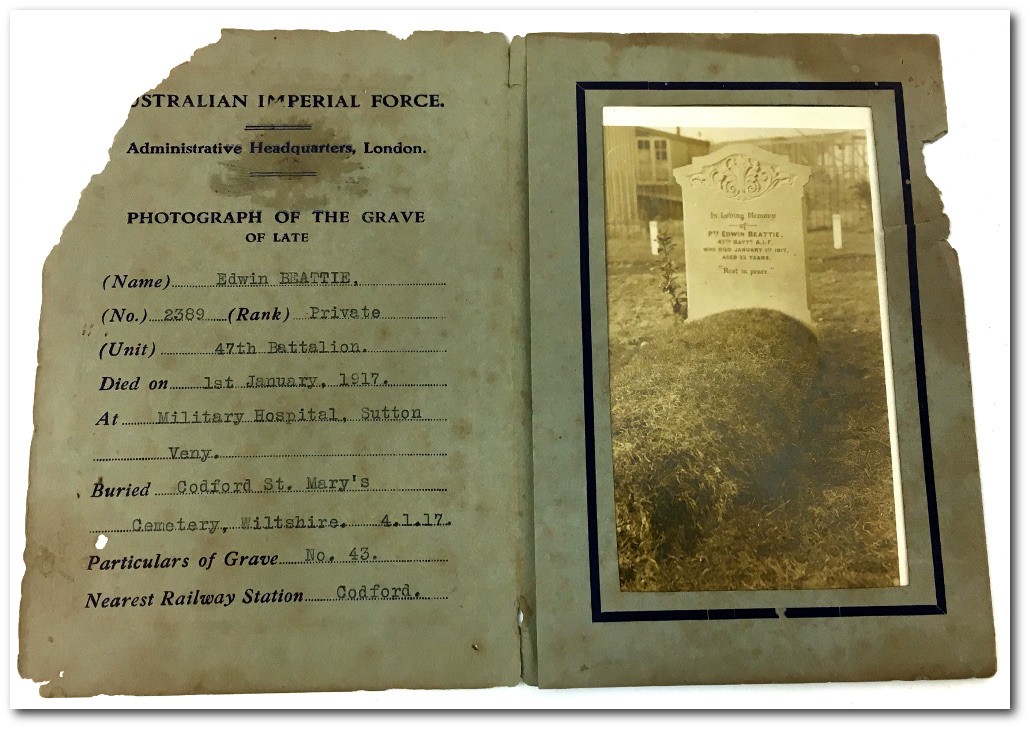 USTRALIAN IMPERIAL FORCE.
Administrative Headquarters, London.
PHOTOGRAPH OF THE GRAVE
OF LATE
(Name) Edwin BEATTIE.
(No.) 2389 (Rank) Private
(Unit) 47th Battalion.
Died on 1st January, 1917.
At Military Hospital, Sutton
Veny.
Buried Codford St. Mary's
Cemetery, Wiltshire. 4.1.17.
Particulars of Grave No. 43.
Nearest Railway Station Codford.
In Loving Memory
of
PTE EDWIN BEATTIE.
47TH BATTN A.I.F.
WHO DIED JANUARY 1ST 1917,
AGED 23 YEARS.
"Rest in peace."